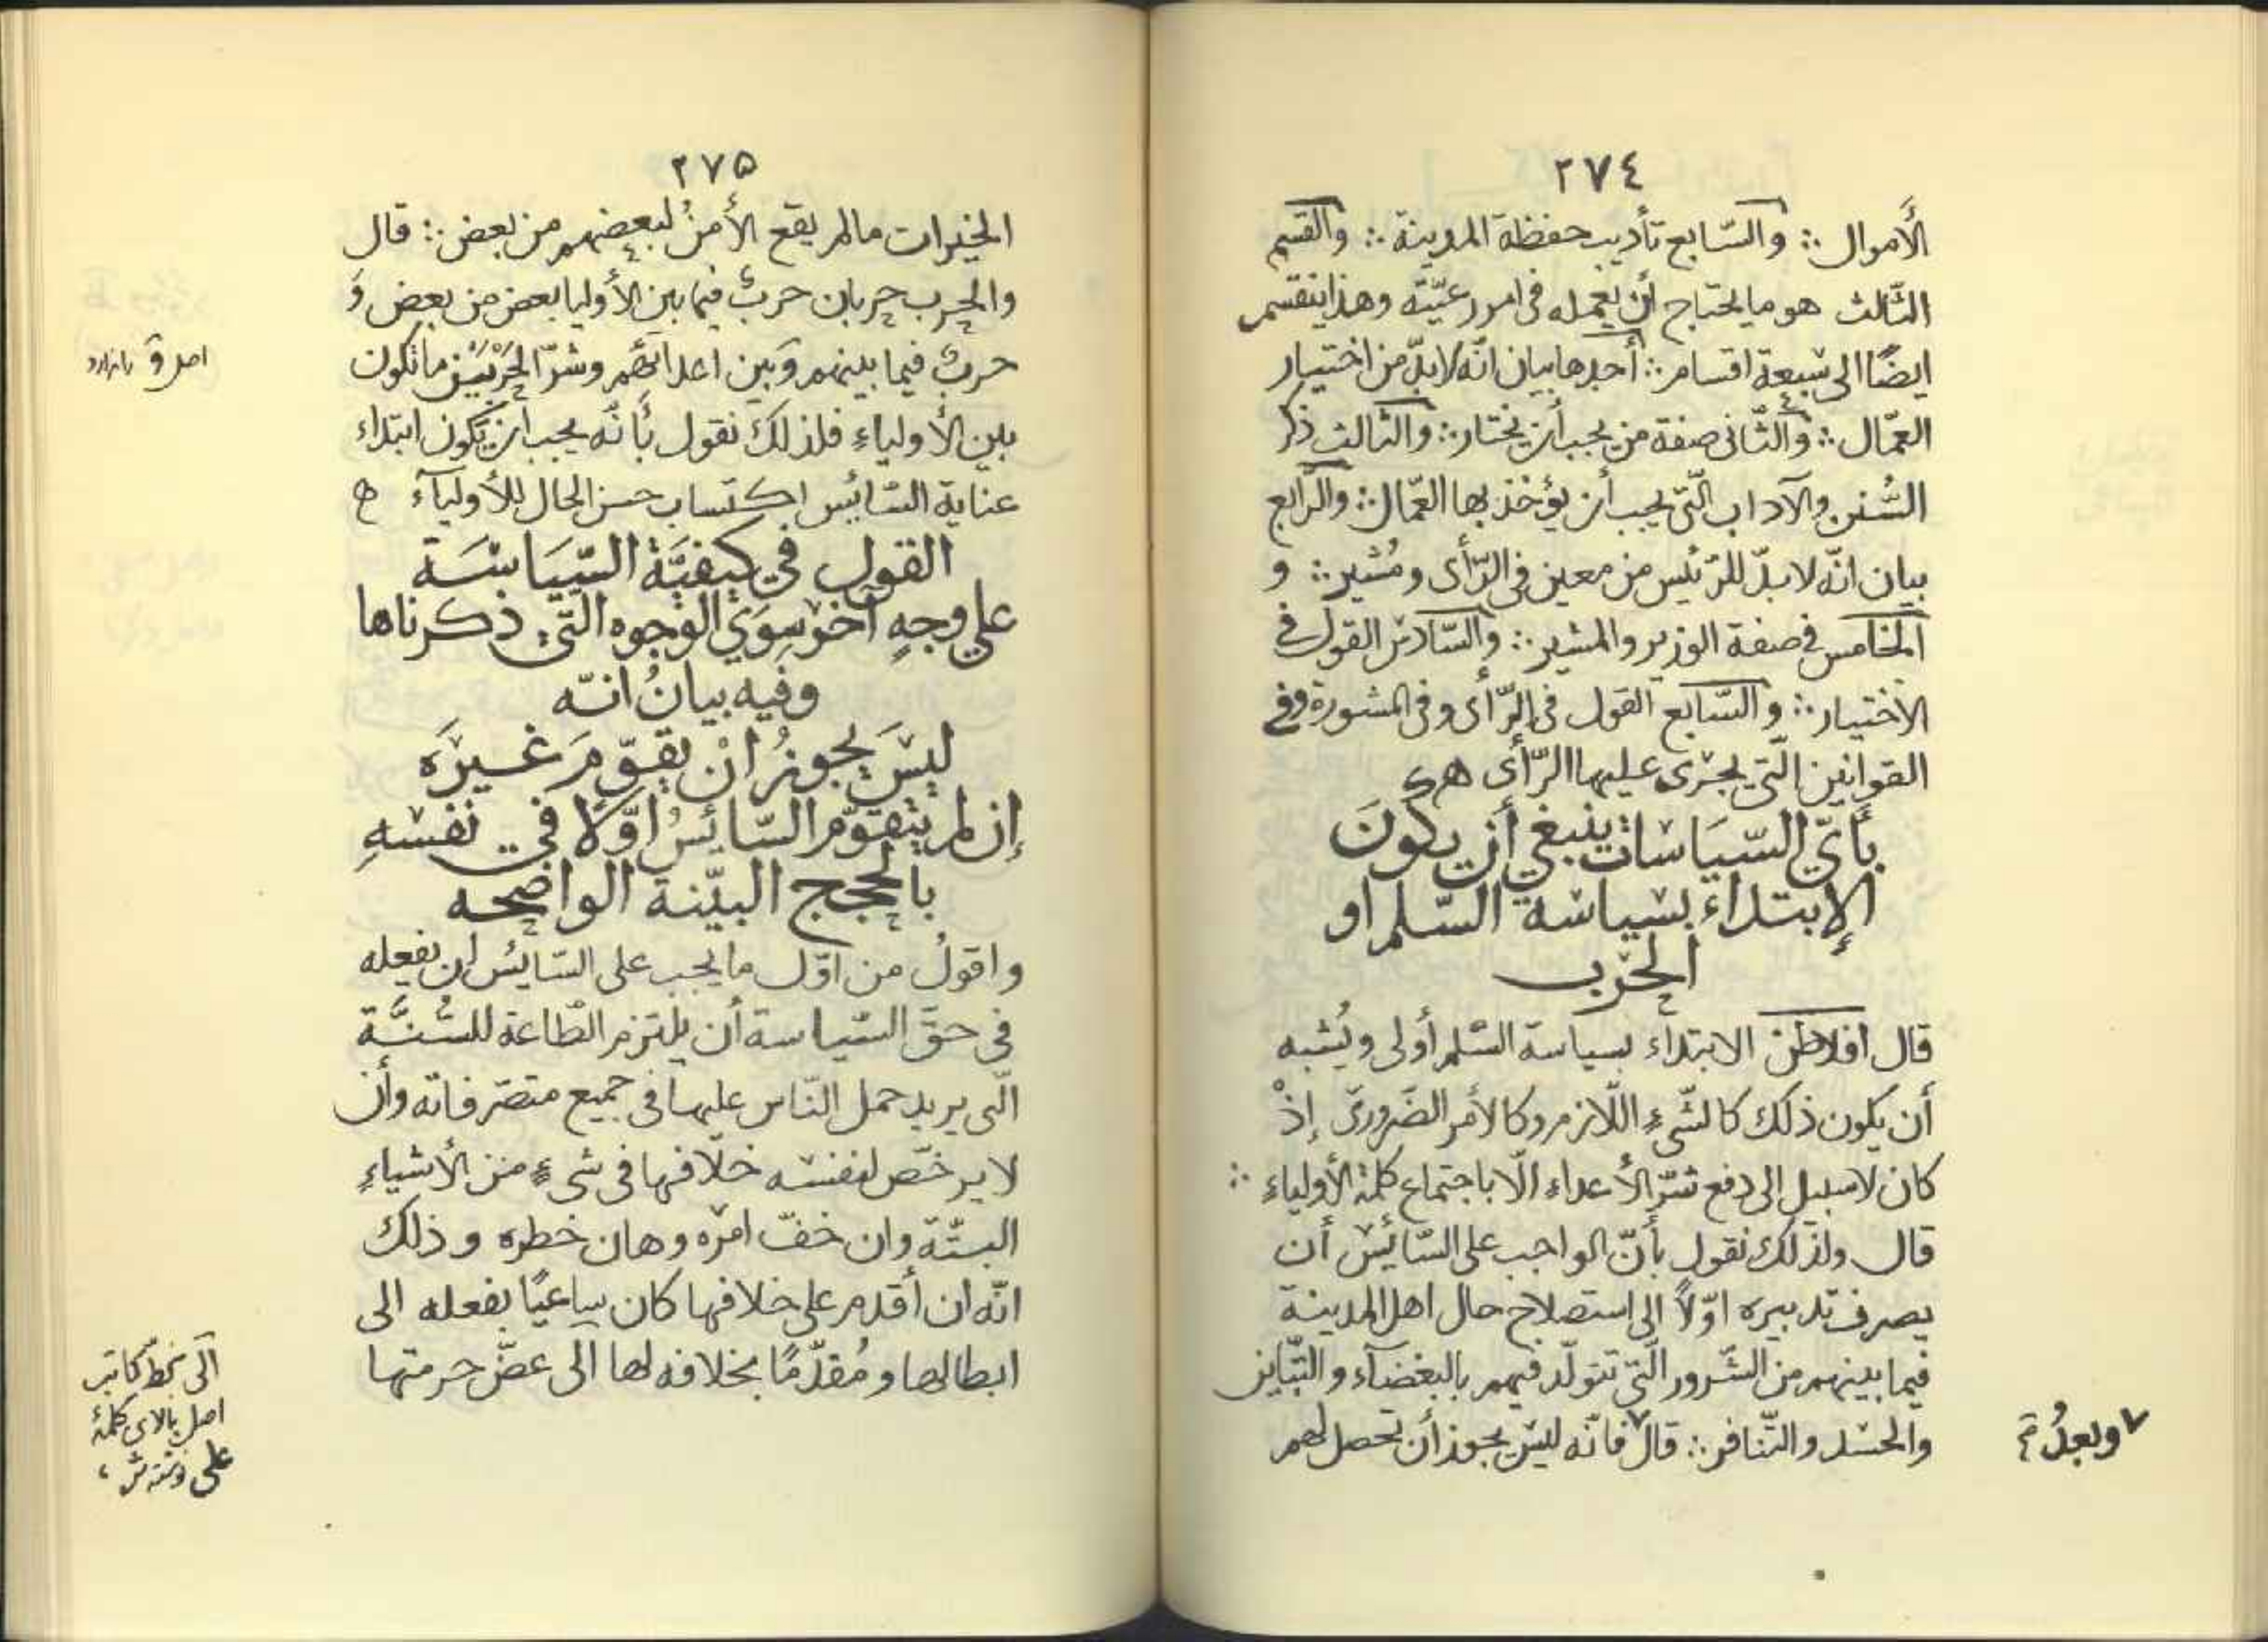 ٢٧٤
الأَموال ∴ والسّابع تأديب حفظة المدينة ∴ والقسم
الثّالث هو ما يحتاج أن يعمله فى امور عيّته وهذا ينقسم
ايضًا الى سَبعة اقسام ∴ أحدها بيان انّه لابدّ من اختيار
العمّال ∴ والثّانى صفة من يجب أن يختار ∴ والثالث ذكر
السُّنن والآداب الّتى يجب أن يؤخذ بها العمّال ∴ والرّابع
بيان انّه لابدّ للرّئيس من معين فى الرّأى ومُشير ∴ و
الخامس فى صفة الوزير والمشير ∴ والسّادس القول فى
الاختيار ∴ والسّابع القول فى الرّأى وفى المشورة وفى
القوانين الّتى يجرى عليها الرّأى
بأيّ السّيَاسات ينبغي أن يكونَ
الإبتداء بسياسة السّلم او
الحرْب
قال افلاطن الابتداء بسياسة السّلم أولى ويُشبه
أن يكون ذلك كالشّىءِ اللّازم وكالأمر الضّرورىّ إذْ
كان لا سبيل الى دفع شرّ الأعداء الّا باجتماع كلمة الأولياءِ ∴
قال ولذلك نقول بأنّ الواجب على السّائس أن
يصرف تدبيره اوّلاً الى استصلاح حال اهل المدينة
فيما بينهم من الشّرور الّتى تتولّد فيهم بالبغضآء والتّباين
والحسَد والتّنافر ∴ قال ٧ فانّه ليس يجوز أن تحصل لهم
٧ وبعدُ
٢٧٥
الخيرات مالم يقع الأمنُ لبعضهم من بعض ∴ قال
والحرب حربان حربٌ فيما بين الأوليا بعض من بعض وَ
حربٌ فيما بينهم وَبين اعدائهم وشرّ الحرْبَيْن ما تكون
بين الأولياءِ فلذلك نقول بأنّه يجب ان يكون ابتداء
عناية السّائس اكتساب حسن الحال للأوليآء ه
القول في كيفيَّة السّيَاسَة
علي وجهٍ آخر سِوَي الوجوه الّتي ذكرناها
وفيه بيانُ انّه
ليسَ يجوزُ انْ يقوّمَ غيرَه
إن لم يتقوّم السّائسُ اوّلًا في نفسْهِ
بالحجج البيّنة الواضحه
واقولُ من اوّل ما يجب على السّايس ان يفعله
فى حقّ السّياسة أن يلتزم الطّاعة للسُّنّة
الّتى يريد حمل النّاس عليها فى جميع متصرّفاته وأن
لا يرخّص لنفسه خلافها فى شىءٍ من الأشياءِ
البتّة وان خفّ امرْه وهان خطره وذلك
انّه ان أقدم على خلافها كان ساعيًا بفعله الى
ابطالها ومُقدّمًا بخلافه لها الى غضّ حرمتها
اصل وَ ندارد
الى بخطّ كاتب
اصل بالاى كلمۀ
على نوشته شد